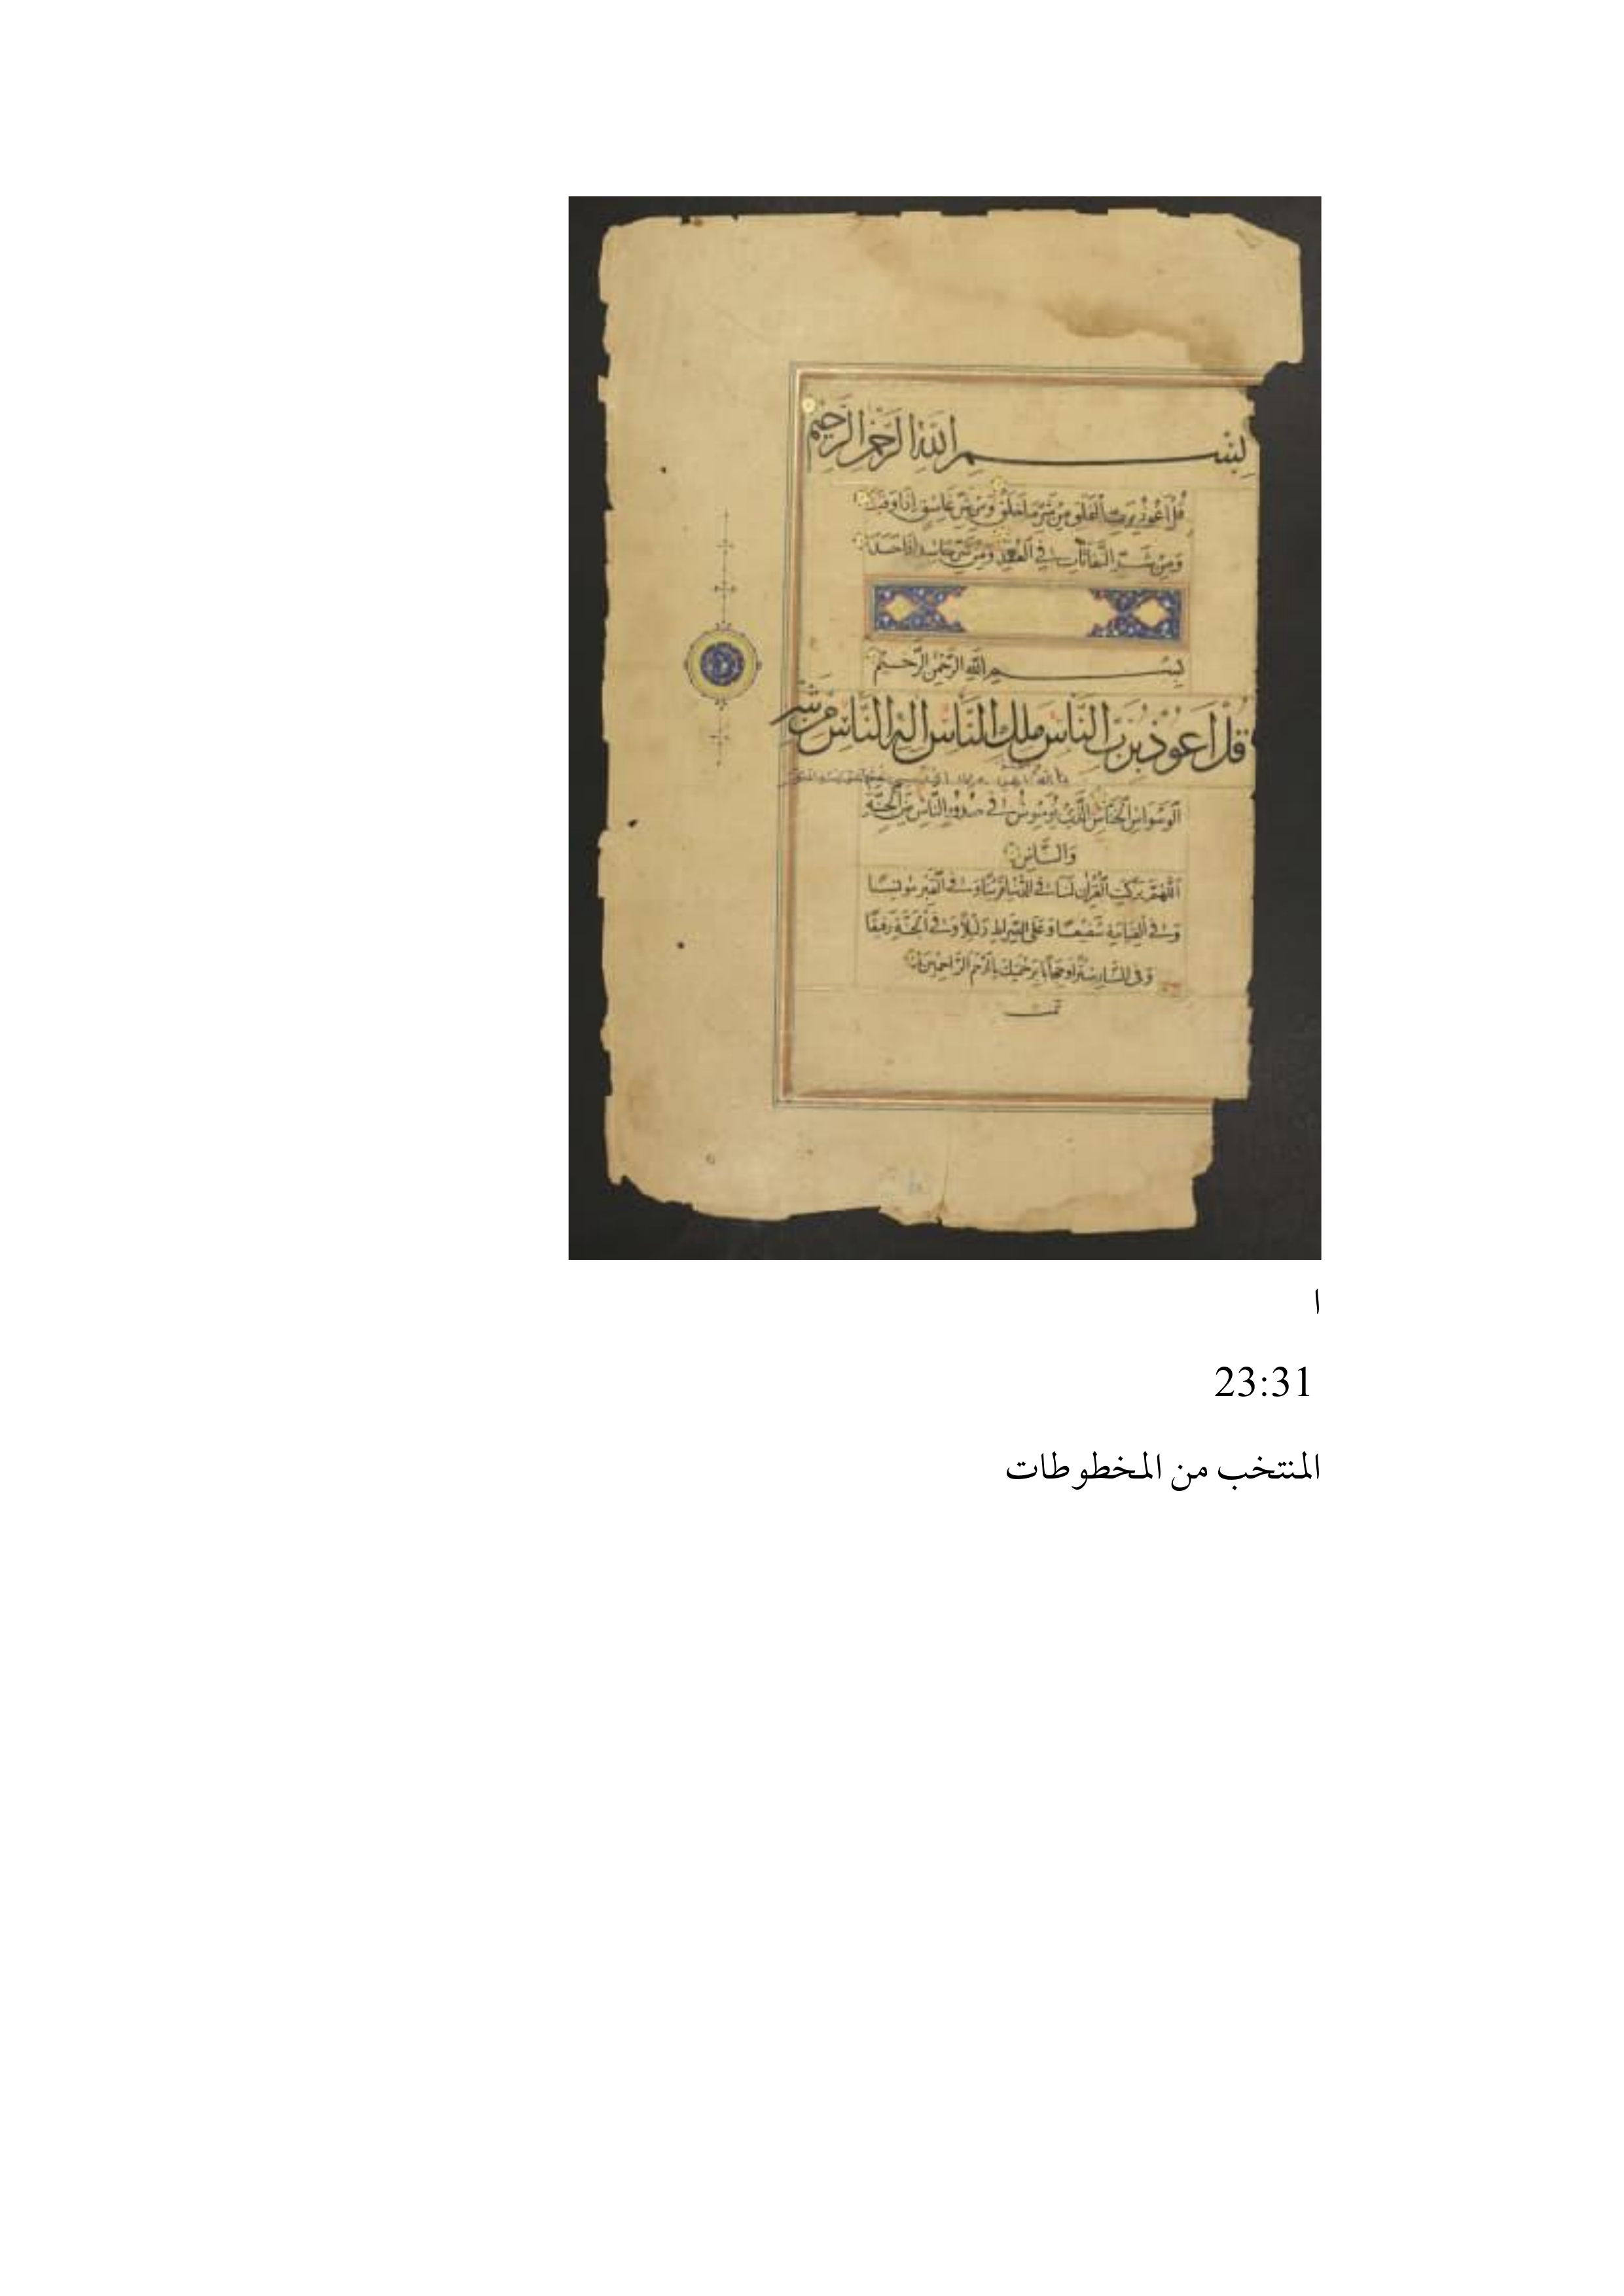 بِسْمِ اللَّهِ الرَّحْمَنِ الرَّحِيمِ
قُلْ أَعُوذُ بِرَبِّ الْفَلَقِ مِنْ شَرِّ مَا خَلَقَ وَمِنْ شَرِّ غَاسِقٍ إِذَا وَقَبَ
وَمِنْ شَرِّ النَّفَّاثَاتِ فِي الْعُقَدِ وَمِنْ شَرِّ حَاسِدٍ إِذَا حَسَدَ
بِسْمِ اللَّهِ الرَّحْمَنِ الرَّحِيمِ
قُلْ أَعُوذُ بِرَبِّ النَّاسِ مَلِكِ النَّاسِ إِلَهِ النَّاسِ مِنْ شَرِّ
الْوَسْوَاسِ الْخَنَّاسِ الَّذِي يُوَسْوِسُ فِي صُدُورِ النَّاسِ مِنَ الْجِنَّةِ
وَالنَّاسِ
اللَّهُمَّ بِبَرَكَةِ الْقُرْآنِ لَنَا فِي الدُّنْيَا قَرِينًا وَفِي الْقَبْرِ مُونِسًا
وَفِي الْقِيَامَةِ شَفِيعًا وَعَلَى الصِّرَاطِ دَلِيلًا وَفِي الْجَنَّةِ رَفِيقًا
وَفِي النَّارِ سِتْرًا وَحِجَابًا بِرَحْمَتِكَ يَا أَرْحَمَ الرَّاحِمِينَ
تمت
ا
23:31
المنتخب من المخطوطات